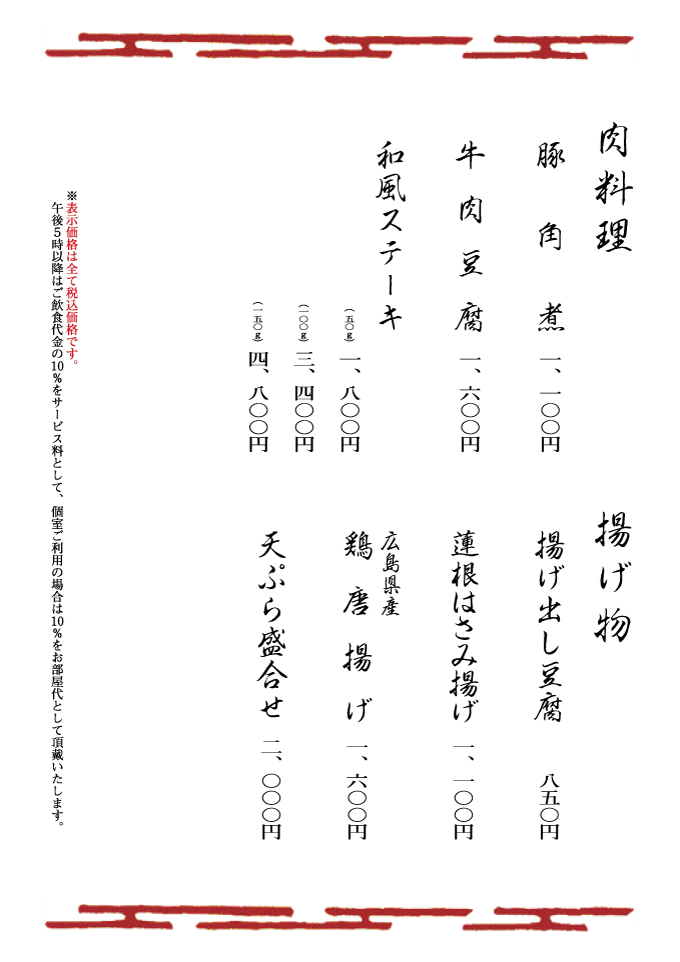 肉料理
豚角煮 一、一〇〇円
牛肉豆腐 一、六〇〇円
和風ステーキ
（五〇g）一、八〇〇円
（一〇〇g）三、四〇〇円
（一五〇g）四、八〇〇円
揚げ物
揚げ出し豆腐 八五〇円
蓮根はさみ揚げ 一、一〇〇円
広島県産
鶏唐揚げ 一、六〇〇円
天ぷら盛合せ 二、〇〇〇円
※表示価格は全て税込価格です。
午後5時以降はご飲食代金の10％をサービス料として、個室ご利用の場合は10％をお部屋代として頂戴いたします。